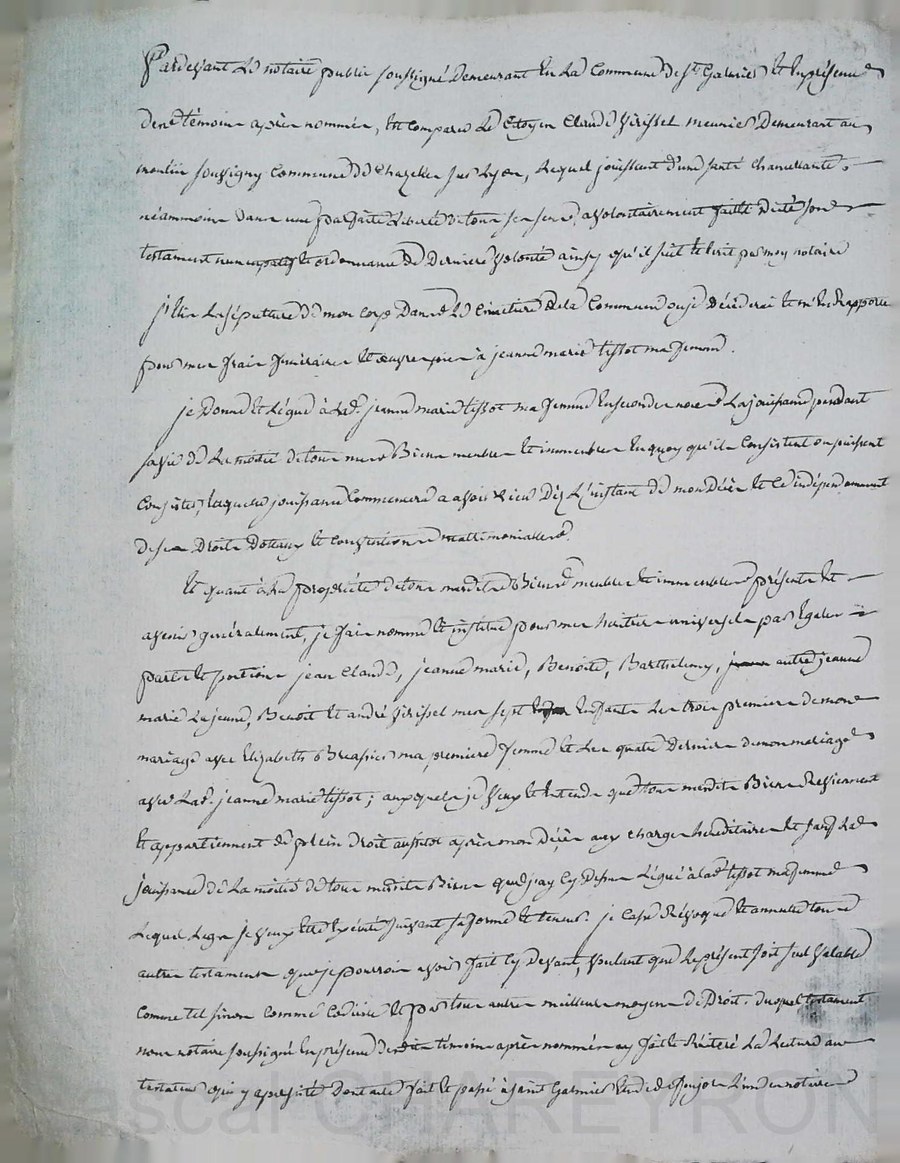 Pardevant le notaire public soussigné demeurant en la commune de St Galmier et en présence
des témoins après nommés, est comparu le Citoyen Claude Virissel meunier demeurant au
moulin Souvigny commune de Chazelles sur Lyon, lequel jouissant d'une santé chancellante
néammoins dans une parfaite liberté de tous ses sens a volontairement fait et dicté son
testament nuncupatif et ordonnance de dernière volonté ainsy qu'il suit et écrit par moy notaire
j'élis la sépulture de mon corps dans le cimetière de la commune ou je décéderai et m'en rapporte
pour mes frais funéraires et œuvres pies à jeanne marie tissot ma femme.
je donne et lègue à lad. jeanne marie tissot ma femme en secondes noces la jouissance pendant
sa vie de la moitié de tous mes Biens meubles et immeubles en quoy qu'ils consistent ou puissent
consister, laquelle jouissance commencera a avoir lieu dez l'instant de mon décès et ce indépendamment
de ses droits dottaux et conventions matrimonialles.
et quant à la propriété de tous mesdits Biens meubles et immeubles présents et
avenir généralement, je fais nomme et institue pour mes héritiers universels par égales
parts et portions jean claude, jeanne marie, Benoite, Barthelemy, autre jeanne
marie la jeune, Benoit et andré Virissel mes sept enfants les trois premiers de mon
mariage avec Elizabeth ma première femme et les quatre derniers de mon mariage
avec lad. jeanne marie tissot; auxquels je veux et entends que tous mesdits Biens reviennent
et appartiennent de plein droit aussitot après mon décès aux charges héréditaires et sauf la
jouissance de la moitié de tous mesdits Biens que j'ay cy dessus légué à lad. tissot ma femme
lequel legs je veux être exécuté suivant sa forme et teneur. je casse révoque et annulle tous
autres testaments que je pourrois avoir fait cy devant, voulant que le présent soit seul valable
comme tel sinon comme codicile et par tout autre meilleur moyen de droit. duquel testament
nous notaire soussigné en présence desdits témoins après nommés avons fait et réitéré la lecture au
testateur qui y a persisté dont acte fait et passé à saint Galmier